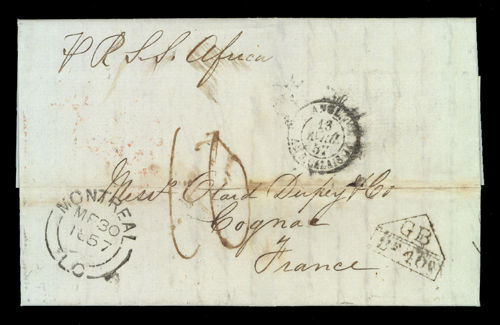 P R S.S. Africa
ANGL.
13
AVRIL
57
CALAIS
Messrs Otard Dupuy & Co
Cognac
France
MONTREAL
MR 30
1857
L.C
GB
1F 40c